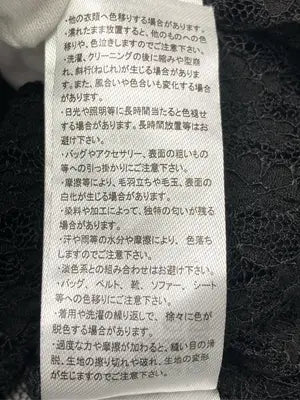 ・他の衣類へ色移りする場合があります。
・濡れたまま放置すると、他のものへの色
移りや、色泣きしますのでご注意下さい。
・洗濯、クリーニングの後に縮みや型崩
れ、斜行(ねじれ)が生じる場合がありま
す。また、風合いや色合いも変化する場合
があります。
・日光や照明等に長時間当たると色褪せ
する場合があります。長時間放置等はお
避け下さい。
・バッグやアクセサリー、表面の粗いもの
等への引っ掛かりにご注意下さい。
・摩擦等により、毛羽立ちや毛玉、表面の
白化が生じる場合があります。
・染料や加工によって、独特の匂いが残る
場合があります。
・汗や雨等の水分や摩擦により、色落ち
しますのでご注意下さい。
・淡色系との組み合わせはお避け下さい。
・バッグ、ベルト、靴、ソファー、シート
等への色移りにご注意下さい。
・着用や洗濯の繰り返しで、徐々に色が
脱色する場合があります。
・過度な力や摩擦が加わると、縫い目の滑
脱、生地の擦り切れや破れ、生地の変形
が生じますのでご注意下さい。